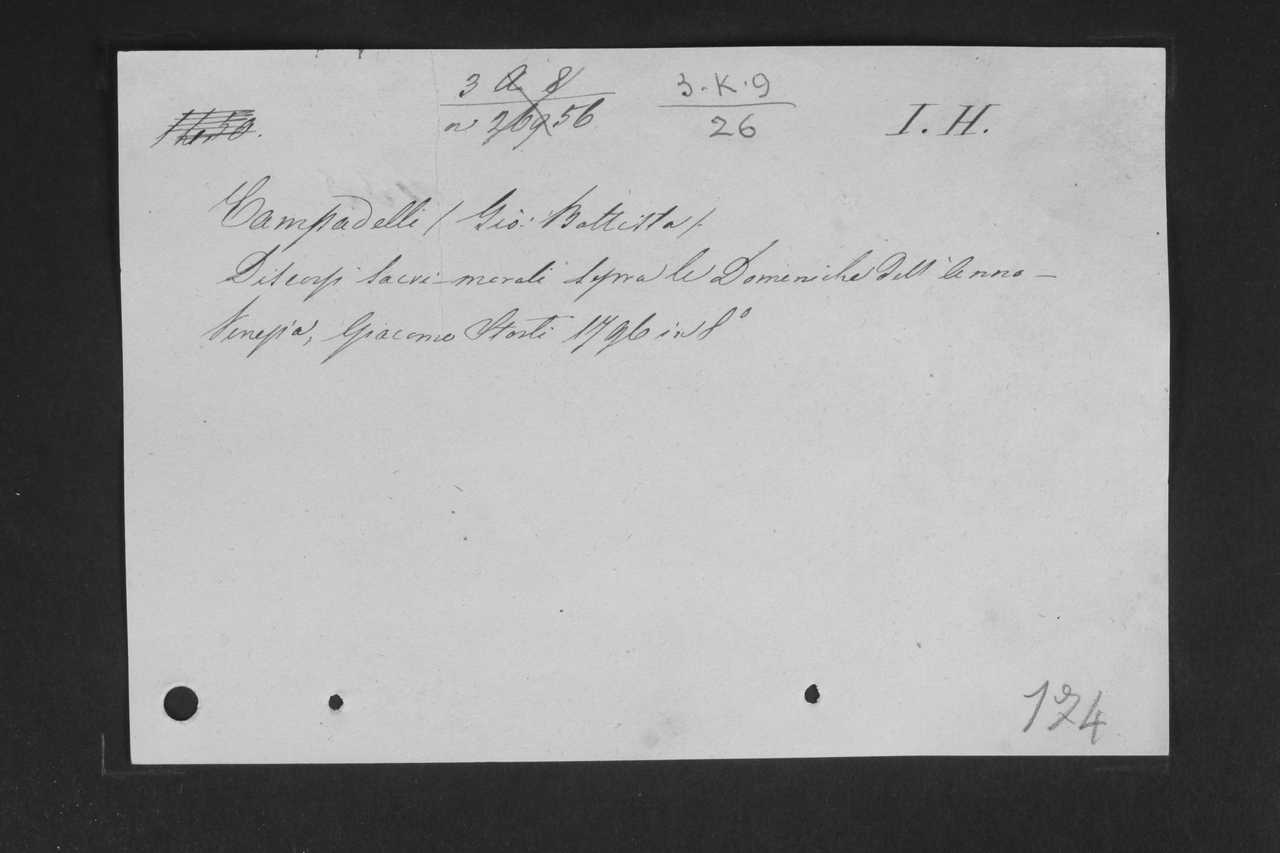 3 A 8 3.K.9 I. H.
26956 26
Campadelli / Gio: Battista /.
Discorsi sacri-morali sopra le Domeniche dell'anno –
Venezia, Giacomo Storti 1796 in 8°
124